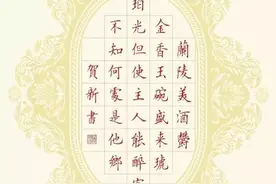 蘭陵美酒鬱
金香玉碗盛来琥
珀光但使主人能醉客
不知何處是他鄉
賀新書